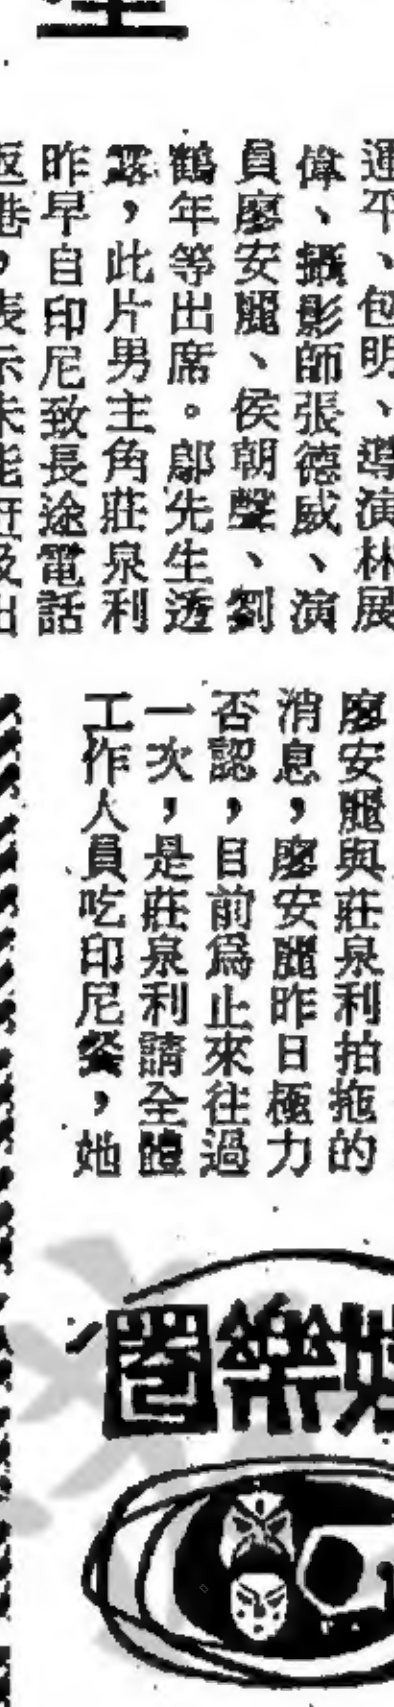 運平、包明、導演林展
偉、攝影師張德威、演
員廖安麗、侯朝聲、劉
鶴年等出席。鄔先生透
露，此片男主角莊泉利
昨早自印尼致長途電話
返港，表示未能趕及出
廖安麗與莊泉利拍拖的
消息，廖安麗昨日極力
否認，目前爲止來往過
一次，是莊泉利請全體
工作人員吃印尼餐，她
圈樂娛